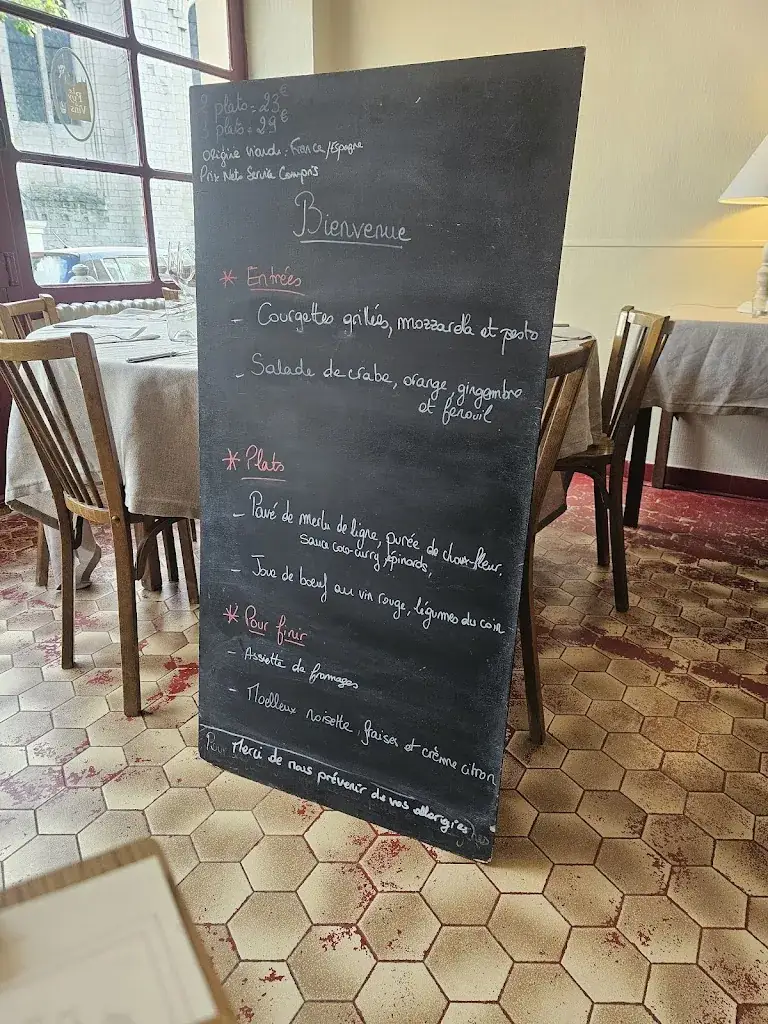 2 plats = 23€
3 plats = 29€
origine viande : France/Espagne
Prix Nets Service Compris
Bienvenue
* Entrées
- Courgettes grillées, mozzarella et pesto
- Salade de crabe, orange, gingembre
et fenouil
* Plats
- Pavé de merlu de ligne, purée de chou-fleur,
sauce coco-curry, épinards,
- Joue de boeuf au vin rouge, légumes du coin
* Pour finir
- Assiette de fromages
- Moelleux noisette, fraises et crème citron
Merci de nous prévenir de vos allergies